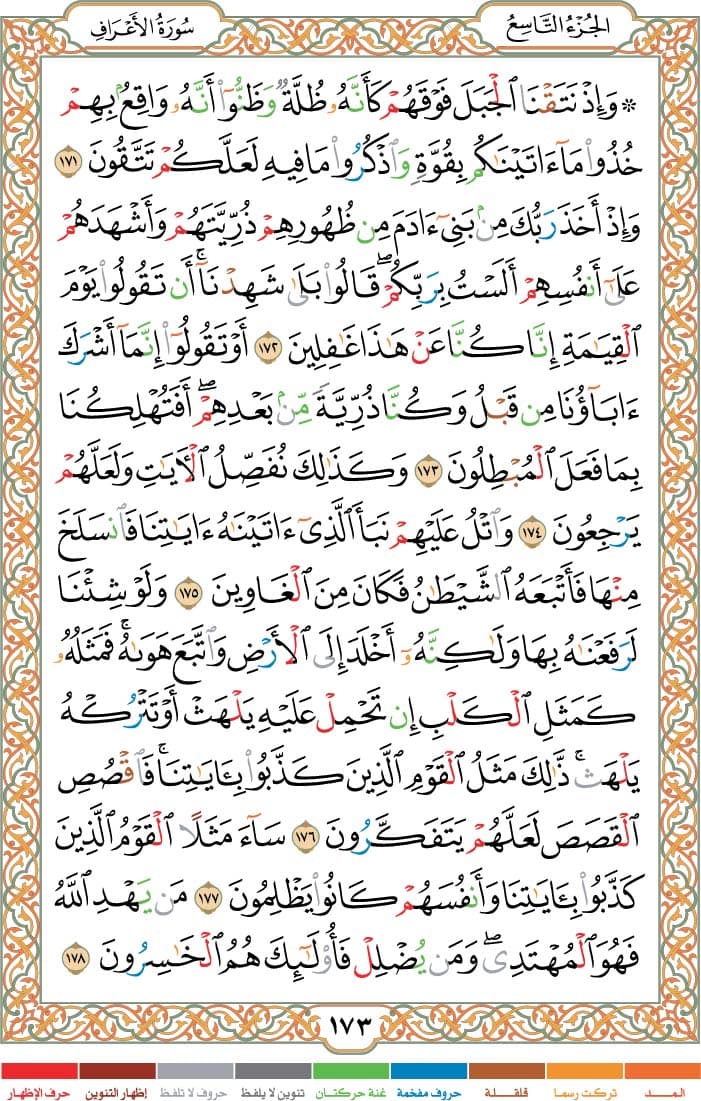 الجُزْءُ التَّاسِعُ
سُورَةُ الأَعْرَافِ
۞ وَإِذ نَتَقْنَا ٱلْجَبَلَ فَوْقَهُمْ كَأَنَّهُۥ ظُلَّةٌ وَظَنُّوٓا۟ أَنَّهُۥ وَاقِعٌۢ بِهِمْ
خُذُوا۟ مَآ ءَاتَيْنَـٰكُم بِقُوَّةٍ وَٱذْكُرُوا۟ مَا فِيهِ لَعَلَّكُمْ تَتَّقُونَ ١٧١
وَإِذْ أَخَذَ رَبُّكَ مِنۢ بَنِىٓ ءَادَمَ مِن ظُهُورِهِمْ ذُرِّيَّتَهُمْ وَأَشْهَدَهُمْ
عَلَىٰٓ أَنفُسِهِمْ أَلَسْتُ بِرَبِّكُمْ ۖ قَالُوا۟ بَلَىٰ شَهِدْنَآ ۛ أَن تَقُولُوا۟ يَوْمَ
ٱلْقِيَـٰمَةِ إِنَّا كُنَّا عَنْ هَـٰذَا غَـٰفِلِينَ ١٧٢ أَوْ تَقُولُوٓا۟ إِنَّمَآ أَشْرَكَ
ءَابَآؤُنَا مِن قَبْلُ وَكُنَّا ذُرِّيَّةً مِّنۢ بَعْدِهِمْ ۖ أَفَتُهْلِكُنَا
بِمَا فَعَلَ ٱلْمُبْطِلُونَ ١٧٣ وَكَذَٰلِكَ نُفَصِّلُ ٱلْـَٔايَـٰتِ وَلَعَلَّهُمْ
يَرْجِعُونَ ١٧٤ وَٱتْلُ عَلَيْهِمْ نَبَأَ ٱلَّذِىٓ ءَاتَيْنَـٰهُ ءَايَـٰتِنَا فَٱنسَلَخَ
مِنْهَا فَأَتْبَعَهُ ٱلشَّيْطَـٰنُ فَكَانَ مِنَ ٱلْغَاوِينَ ١٧٥ وَلَوْ شِئْنَا
لَرَفَعْنَـٰهُ بِهَا وَلَـٰكِنَّهُۥٓ أَخْلَدَ إِلَى ٱلْأَرْضِ وَٱتَّبَعَ هَوَىٰهُ ۚ فَمَثَلُهُۥ
كَمَثَلِ ٱلْكَلْبِ إِن تَحْمِلْ عَلَيْهِ يَلْهَثْ أَوْ تَتْرُكْهُ
يَلْهَث ۚ ذَّٰلِكَ مَثَلُ ٱلْقَوْمِ ٱلَّذِينَ كَذَّبُوا۟ بِـَٔايَـٰتِنَا ۚ فَٱقْصُصِ
ٱلْقَصَصَ لَعَلَّهُمْ يَتَفَكَّرُونَ ١٧٦ سَآءَ مَثَلًا ٱلْقَوْمُ ٱلَّذِينَ
كَذَّبُوا۟ بِـَٔايَـٰتِنَا وَأَنفُسَهُمْ كَانُوا۟ يَظْلِمُونَ ١٧٧ مَن يَهْدِ ٱللَّهُ
فَهُوَ ٱلْمُهْتَدِى ۖ وَمَن يُضْلِلْ فَأُو۟لَـٰٓئِكَ هُمُ ٱلْخَـٰسِرُونَ ١٧٨
١٧٣
المــــد تركت رسما قلقلة حروف مفخمة غنة حركتان تنوين لا يلفظ حروف لا تلفظ إظهار التنوين حرف الإظهار